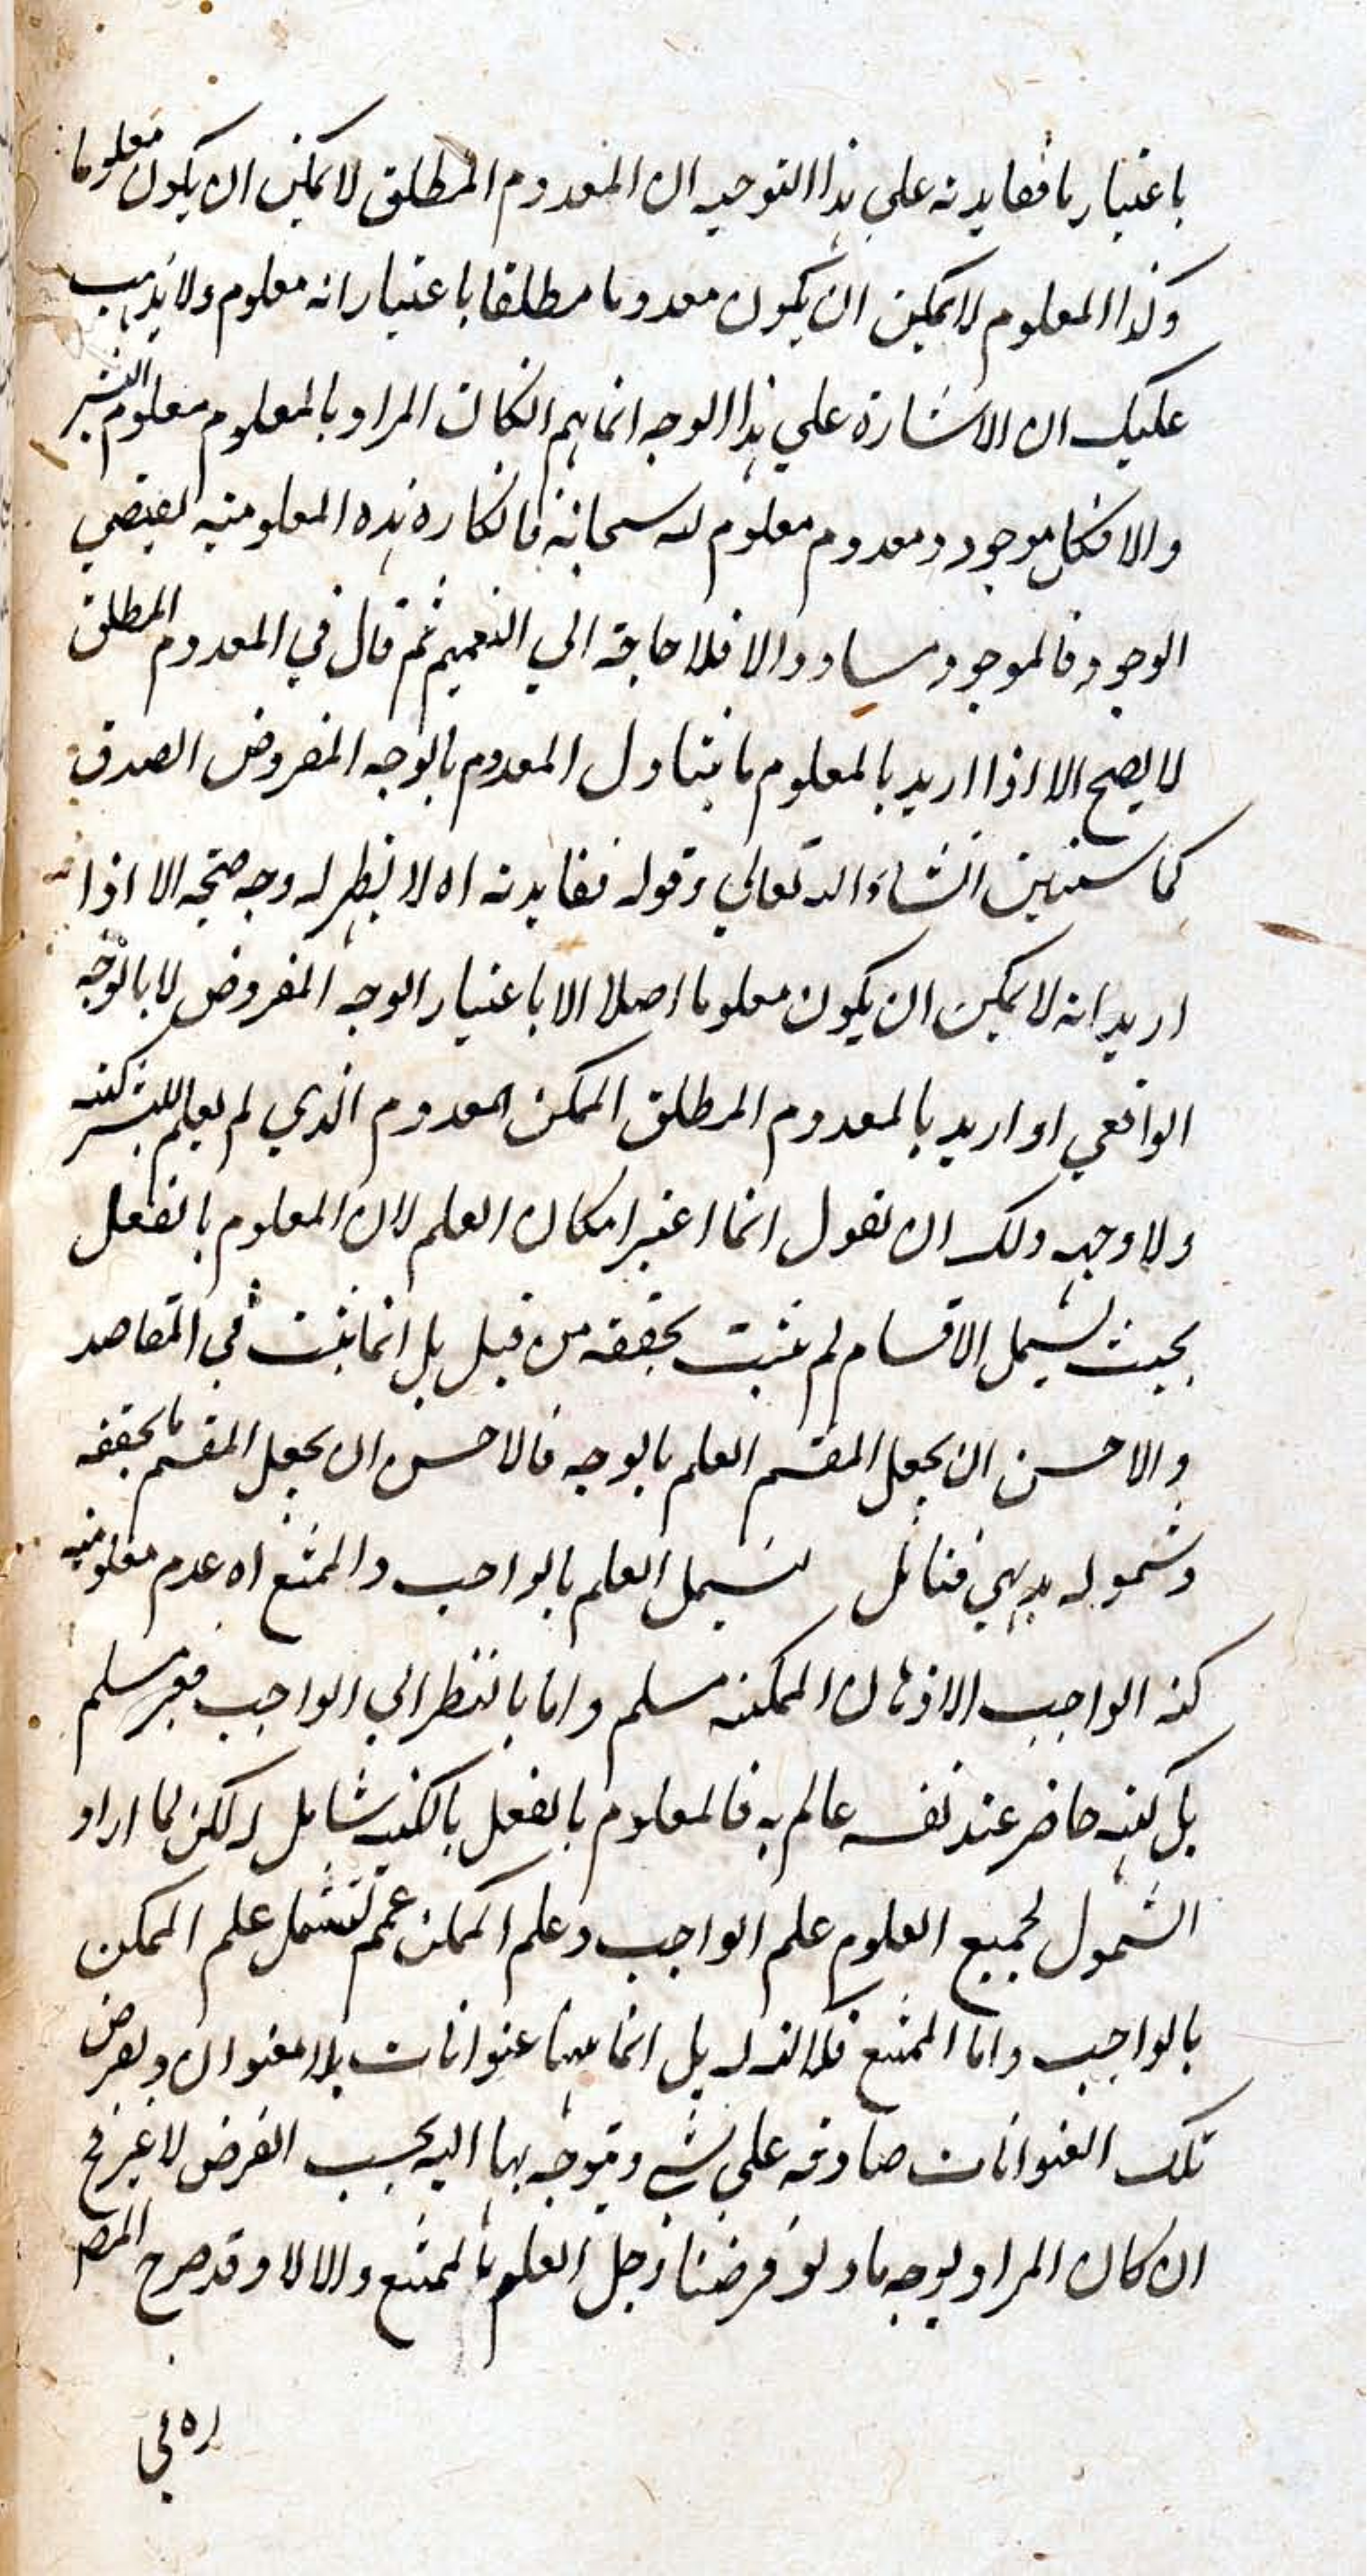 باعتبار ما ففايدته علي هذا التوجيه ان المعدوم المطلق لا يمكن ان يكون معلوما
وكذا المعلوم لا يمكن ان يكون معدوما مطلقا باعتبار انه معلوم ولا يذهب
عليك ان الاشارة علي هذا الوجه انما يتم ان كان المراد بالمعلوم معلوم البشر
والا فكل موجود ومعدوم معلوم لله سبحانه فانكاره هذه المعلومية يقتضي
الوجود فالموجود مساو والا فلا حاجة الي التعميم ثم قال في المعدوم المطلق
لا يصح الا اذا اريد بالمعلوم ما يتناول المعدوم بالوجه المفروض الصدق
كما ستبين انشاء الله تعالي وقوله ففايدته اه لا يظهر له وجه صحة الا اذا
اريد انه لا يمكن ان يكون معلوما اصلا الا باعتبار الوجه المفروض لا بالوجه
الواقعي او اريد بالمعدوم المطلق الممكن المعدوم الذي لم يعلم للبشر كنهه
ولا وجهه ولك ان تقول انما اعتبر امكان العلم لان المعلوم بالفعل
بحيث يشمل الاقسام لم يثبت تحققه من قبل بل انما يثبت في المقاصد
والاحسن ان يجعل المقسم العلم بالوجه فالاحسن ان يجعل المقسم ما تحققه
وشموله بديهي فتامل ليشمل العلم بالواجب والممتنع اه عدم معلومية
كنه الواجب الاذهان الممكنة مسلم واما بالنظر الي الواجب فغير مسلم
بل كنهه حاضر عند نفسه عالم به فالمعلوم بالفعل بالكنه شامل له لكن لما اراد
الشمول لجميع العلوم علم الواجب وعلم الممكن عمم لتشمل علم الممكن
بالواجب واما الممتنع فلا كنه له بل انما ههنا عنوانات بلا معنوان ويفرض
تلك العنوانات صادقه علي شي ويتوجه بها اليه بحسب الفرض لا غير فح
ان كان المراد بوجه ما ولو فرضنا دخل العلم بالممتنع والا لا وقد صرح المص
ره في